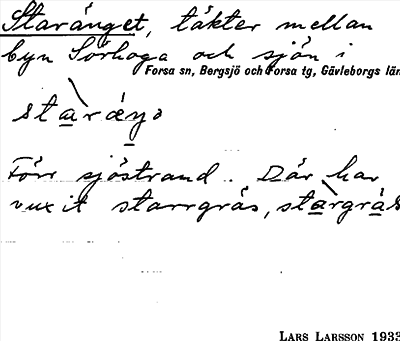 Staränget, täkter mellan
byn Sörhoga och sjön i
Forsa sn, Bergsjö och Forsa tg, Gävleborgs län
Förr sjöstrand. Där har
vuxit starrgräs, stargräs
LARS LARSSON 1933